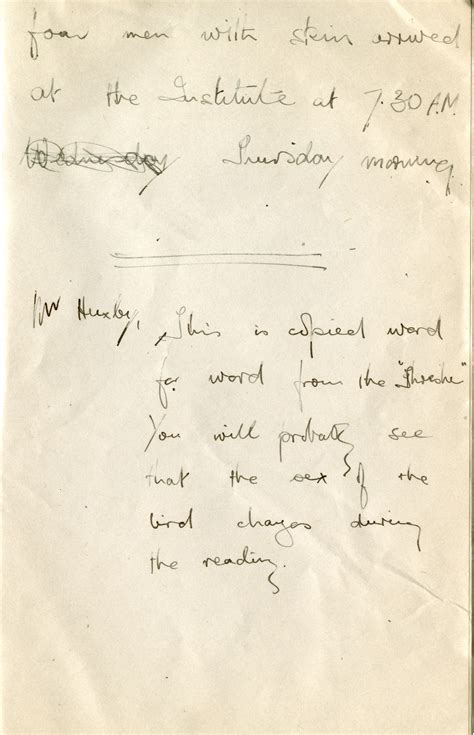 four men with skin arrived
at the Institute at 7.30 A.M.
Wednesday Thursday morning.
Mr Huxby,
This is copied word
for word from the "
You will probably see
that the sex of the
bird changes during
the reading.